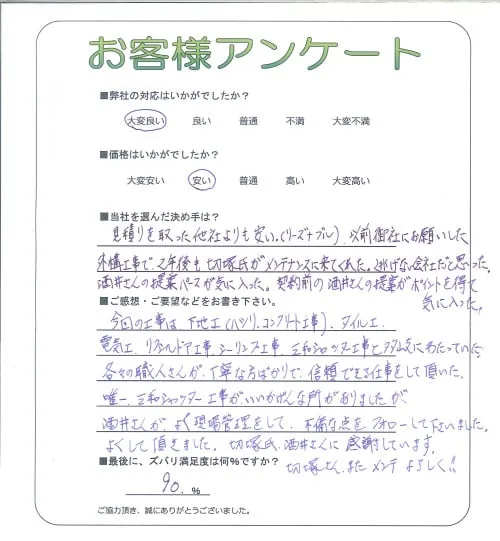 お客様アンケート
■弊社の対応はいかがでしたか？
大変良い 良い 普通 不満 大変不満
■価格はいかがでしたか？
大変安い 安い 普通 高い 大変高い
■当社を選んだ決め手は？
見積りを取った他社よりも安い。(リーズナブル)、以前御社にお願いした
外構工事で、2年後も切塚氏がメンテナンスに来てくれた。逃げない会社だと思った。
酒井さんの提案パースが気に入った。契約前の酒井さんの提案がポイントを得て
気に入った。
■ご感想・ご要望などをお書き下さい。
今回の工事は、下地工(ハツリ、コンクリート工事)、タイル工、
電気工、リフォルドア工事、シーリング工事、三和シャッター工事と多岐にわたっていた。
各々の職人さんが、丁寧なるばかりで、信頼できる仕事をして頂いた。
唯一、三和シャッター工事がいいかげんな所がありましたが
酒井さんが、よく現場管理をして、不備な点をフォローして下さいました。
よくして頂きました。切塚氏、酒井さんに感謝しています。
切塚さん、また メンテ よろしく!!
■最後に、ズバリ満足度は何％ですか？
90. %
ご協力頂き、誠にありがとうございました。